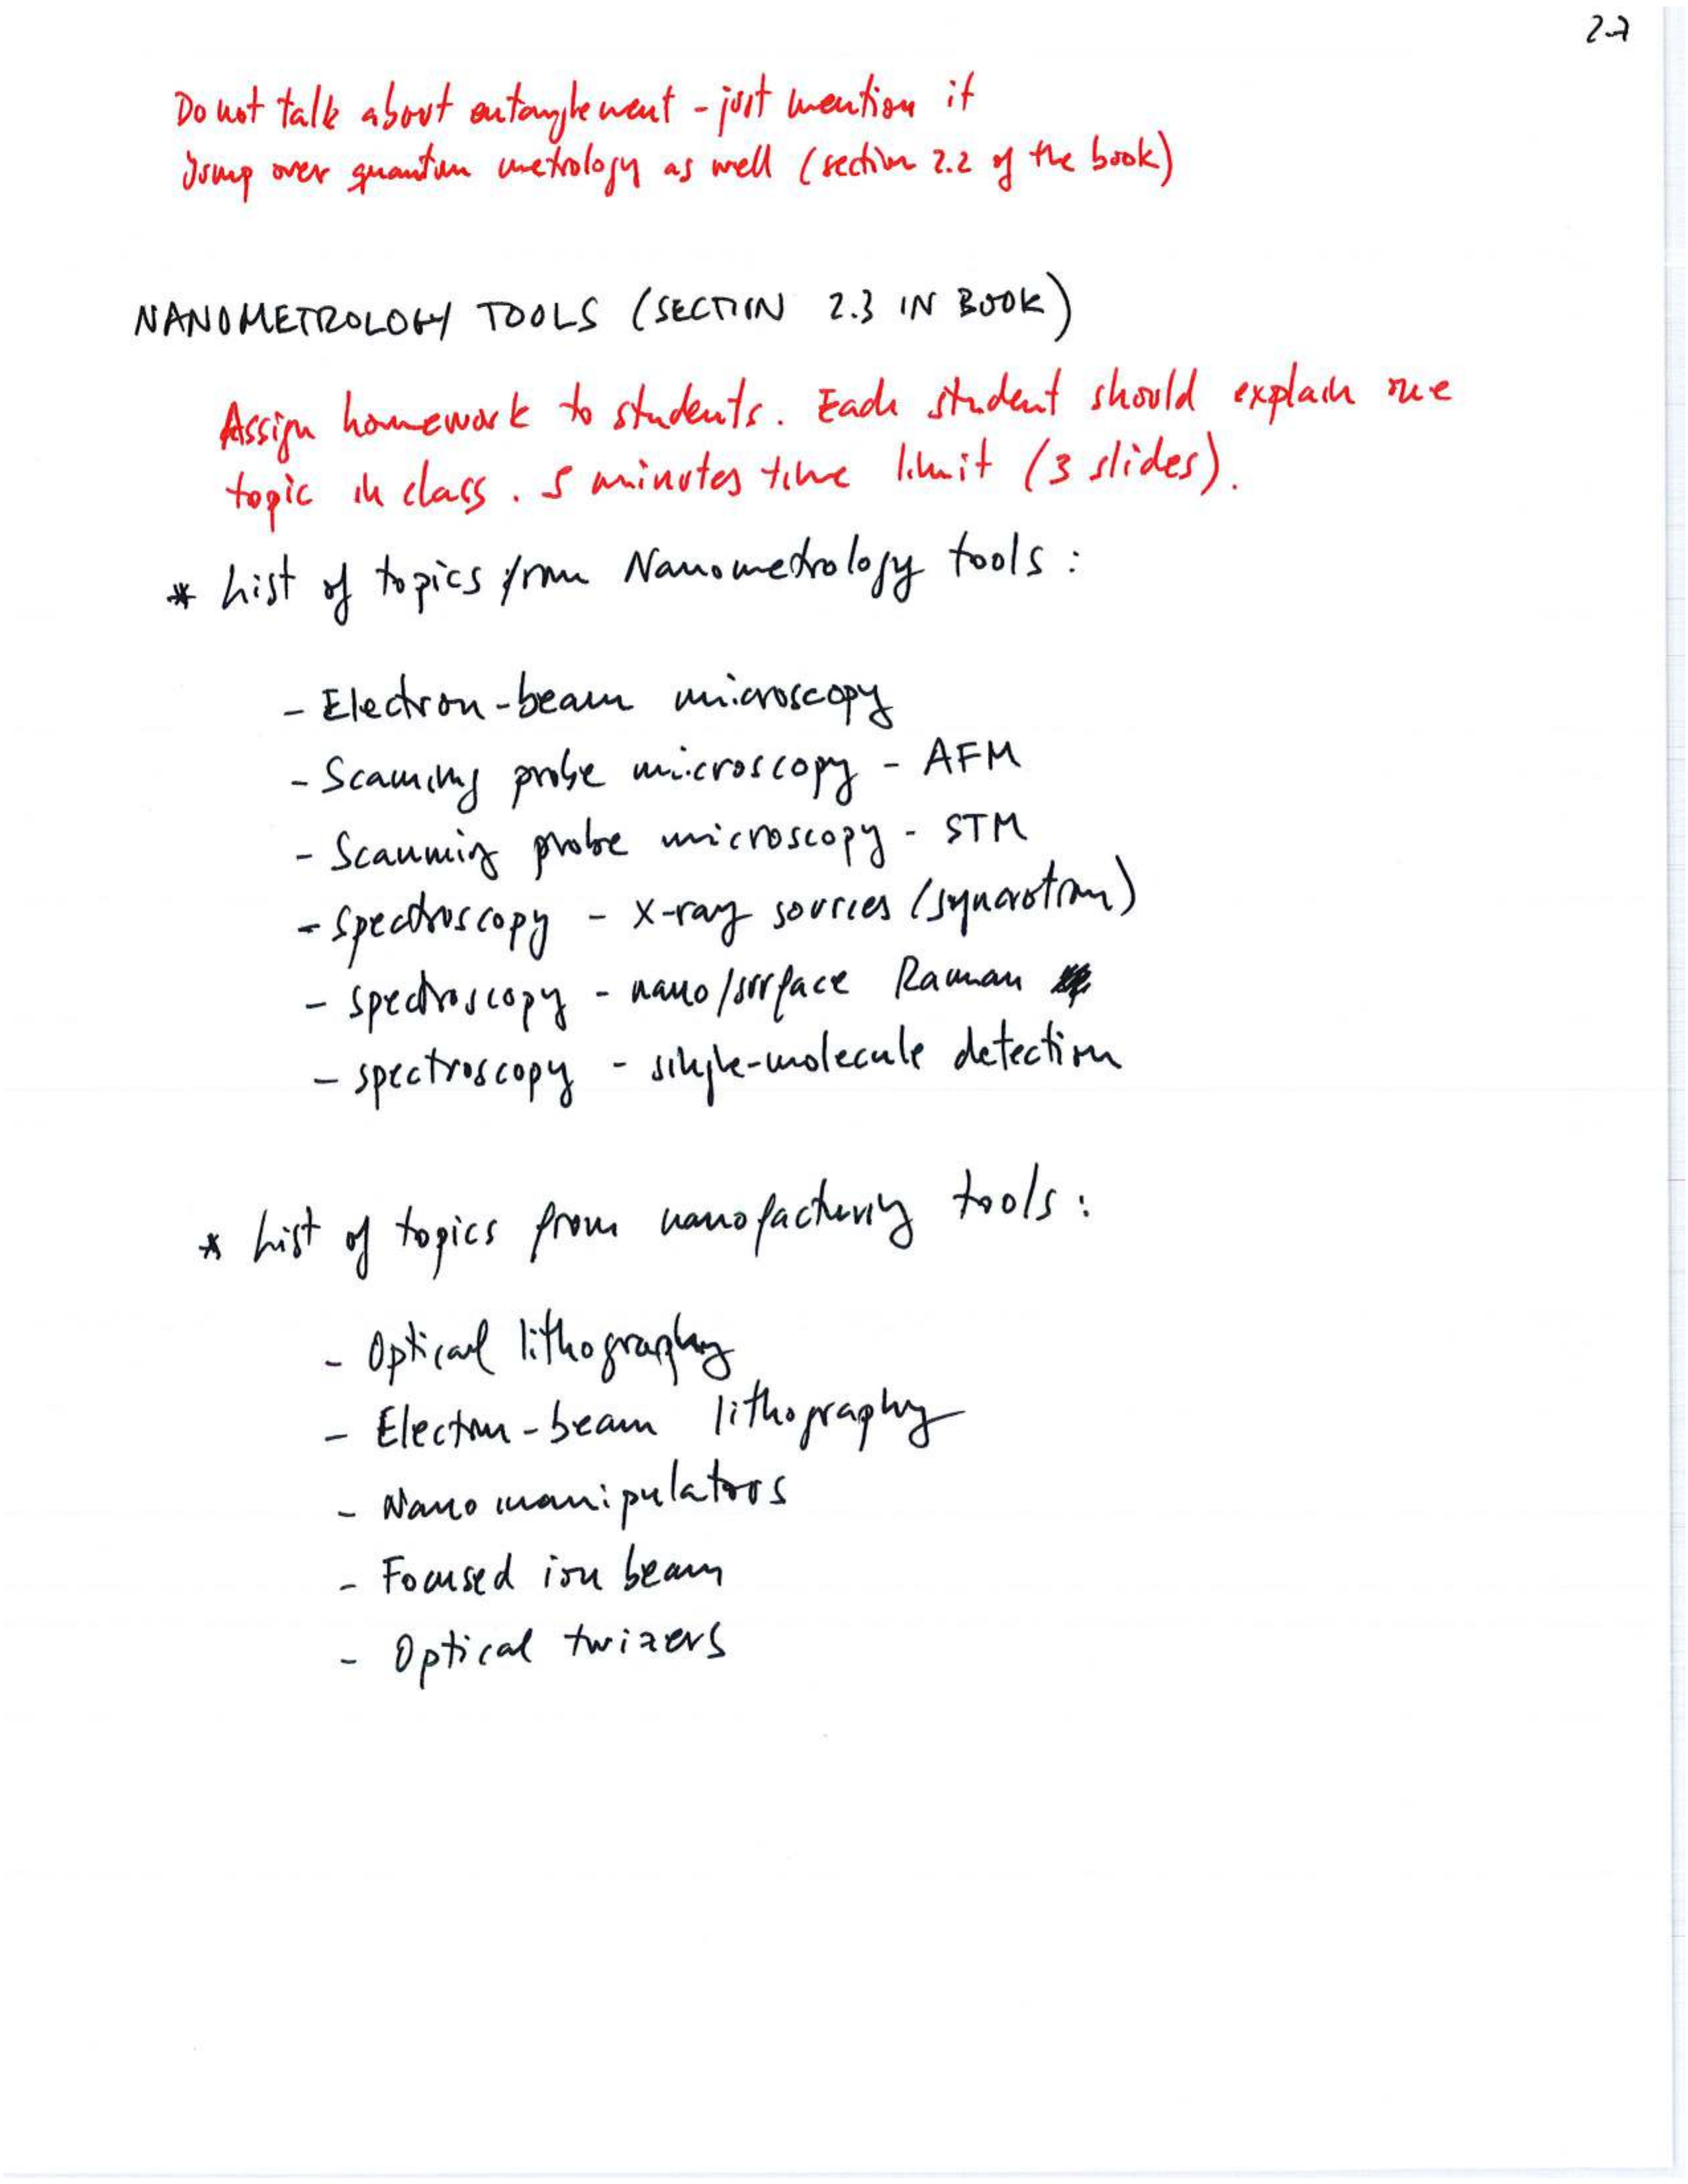 2-7
Do not talk about entanglement - just mention it
Jump over quantum metrology as well (section 2.2 of the book)
NANOMETROLOGY TOOLS (SECTION 2.3 IN BOOK)
Assign homework to students. Each student should explain one
topic in class. 5 minutes time limit (3 slides).
* List of topics from Nanometrology tools:
- Electron-beam microscopy
- Scanning probe microscopy - AFM
- Scanning probe microscopy - STM
- Spectroscopy - X-ray sources (syncrotron)
- spectroscopy - nano/surface Raman
- spectroscopy - single-molecule detection
* List of topics from nanofacturing tools:
- Optical lithography
- Electron-beam lithography
- Nano manipulators
- Focused ion beam
- Optical twizers